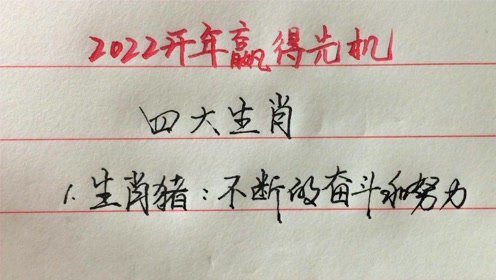 2022开年赢得先机
四大生肖
1. 生肖猪：不断的奋斗和努力